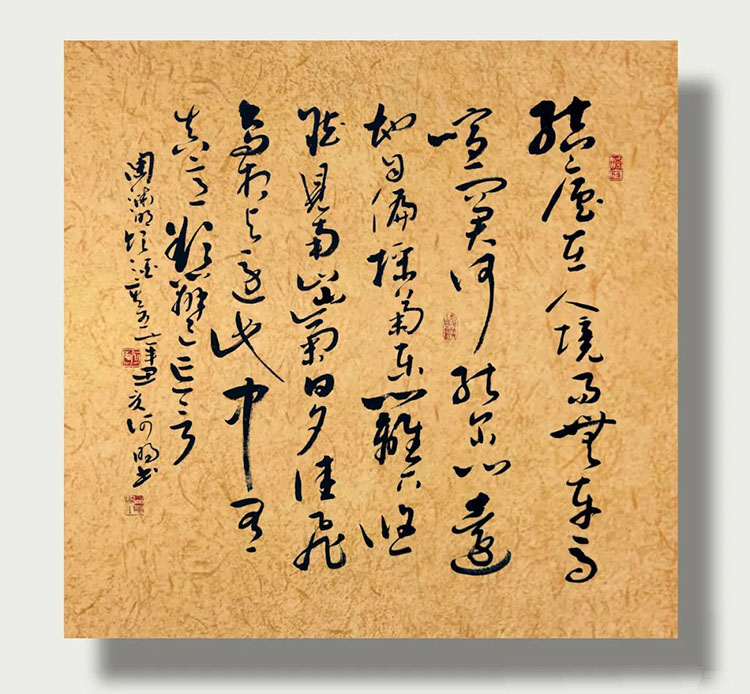 結廬在人境而無車馬
喧問君何能尔心遠
地自偏採菊東籬下悠
然見南山山氣日夕佳飛
鳥相与還此中有
真意欲辨已忘言
陶淵明飲酒其五辛丑河明书